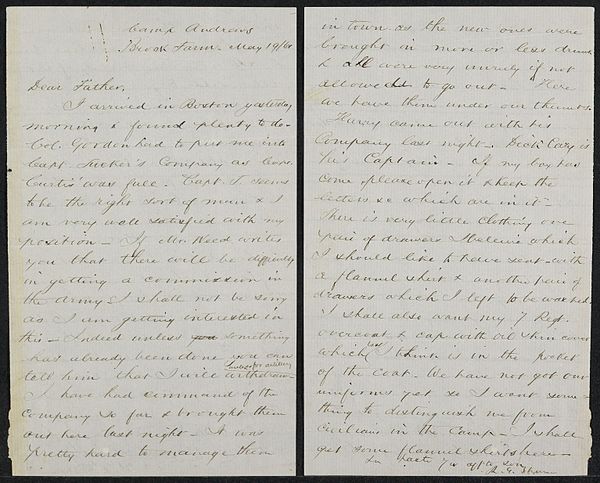 Camp Andrews
Brook Farm - May 19/61
Dear Father,
I arrived in Boston yesterday
morning & found plenty to do -
Col. Gordon had to put me into
Capt. Tucker's Company as Capt.
Curtis' was full. Capt. T. seems
to be the right sort of man & I
am very well satisfied with my
position - If Mr. Weed writes
you that there will be difficulty
in getting a commission in
the army I shall not be sorry
as I am getting interested in
this - Indeed unless you something
has already been done you can
tell him that I will withdraw
I have had command of the
Company so far & brought them
out here last night - It was
pretty hard to manage them
in town as the new ones were
brought in more or less drunk
& all were very unruly if not
allowed to go out - Here
we have them under our thumbs.
Harry came out with his
Company last night - Dick Cary is
his Captain - If my box has
come please open it & keep the
letters &c which are in it -
There is very little clothing one
pair of drawers I believe which
I should like to have sent with
a flannel shirt & another pair of
drawers which I left to be washed
I shall also want my 7 Regt.
overcoat & cap with oil skin cover
which last I think is in the pocket
of the coat. We have not got our
uniforms yet, so I want some-
thing to distinguish me from
civilians in the Camp - I shall
get some flannel shirts here -
In haste Yr aff'te son
R. G. Shaw